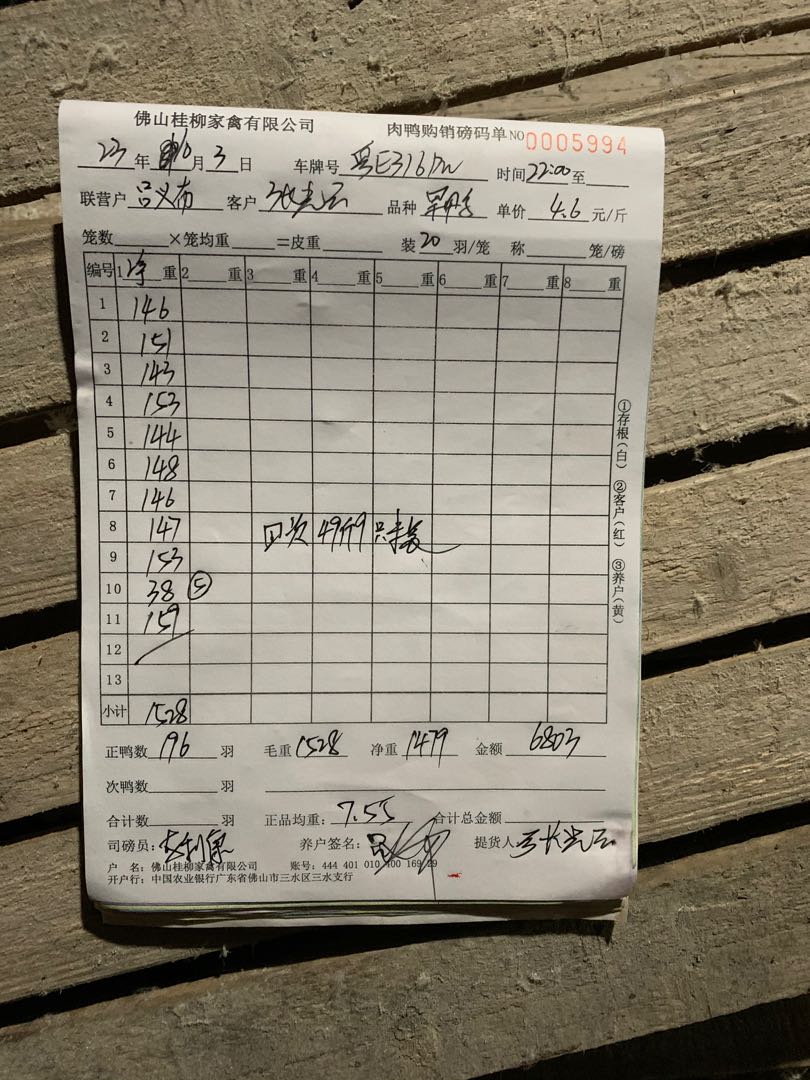 佛山桂柳家禽有限公司 肉鸭购销磅码单 NO 0005994
23年 10月 3日 车牌号 粤E316 时间 22:00 至
联营户 吕义南 客户 张光云 品种 单价 4.6 元/斤
笼数 ×笼均重 =皮重 装 20 羽/笼 称 笼/磅
编号 1 净 重 2 重 3 重 4 重 5 重 6 重 7 重 8 重
1 146
2 151
3 143
4 153
5 144
6 148
7 146
8 147 49斤 9只
9 153
10 38 ⑤
11 159
12
13
小计 1528
①存根(白) ②客户(红) ③养户(黄)
正鸭数 196 羽 毛重 1528 净重 1479 金额 6803
次鸭数 羽
合计数 羽 正品均重: 7.55 合计总金额
司磅员: 李利 养户签名: 提货人 张光云
户 名: 佛山桂柳家禽有限公司 账号: 444 401 010 400 169 29
开户行: 中国农业银行广东省佛山市三水区三水支行